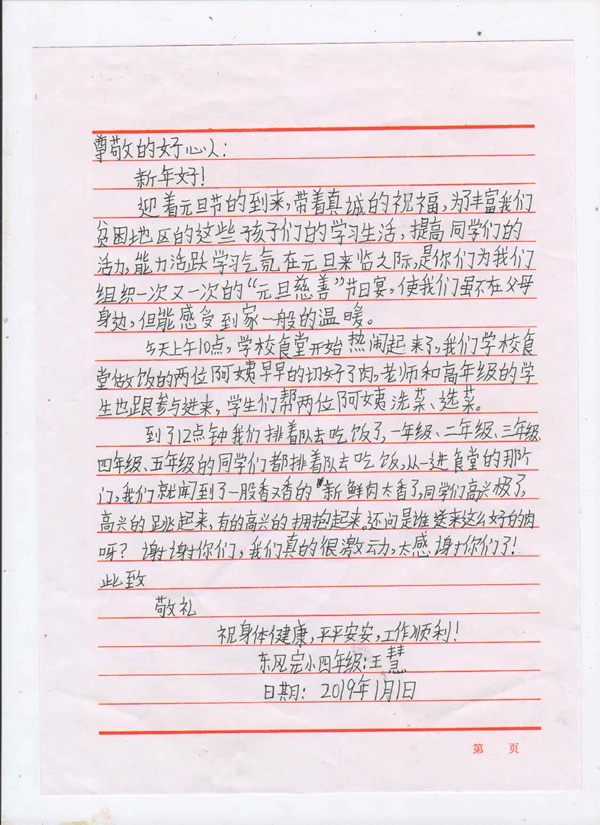 尊敬的好心人:
新年好!
迎着元旦节的到来,带着真诚的祝福,为了丰富我们
贫困地区的这些孩子们的学习生活,提高同学们的
活力,能力活跃学习气氛在元旦来临之际,是你们为我们
组织一次又一次的“元旦慈善”节日宴,使我们虽不在父母
身边,但能感受到家一般的温暖。
今天上午10点,学校食堂开始热闹起来了,我们学校食
堂做饭的两位阿姨早早的切好了肉,老师和高年级的学
生也跟参与进来,学生们帮两位阿姨洗菜、选菜。
到了12点钟我们排着队去吃饭了,一年级、二年级、三年级、
四年级、五年级的同学们都排着队去吃饭,从一进食堂的那个
门,我们就闻到了一股香又香的“新鲜肉太香了,同学们高兴极了,
高兴的跳起来,有的高兴的拥抱起来,还问是谁送来这么好的肉
呀?谢谢你们,我们真的很激动,太感谢你们了!
此致
敬礼
祝身体健康,平平安安,工作顺利!
东风完小四年级:王慧
日期:2019年1月1日
第 页